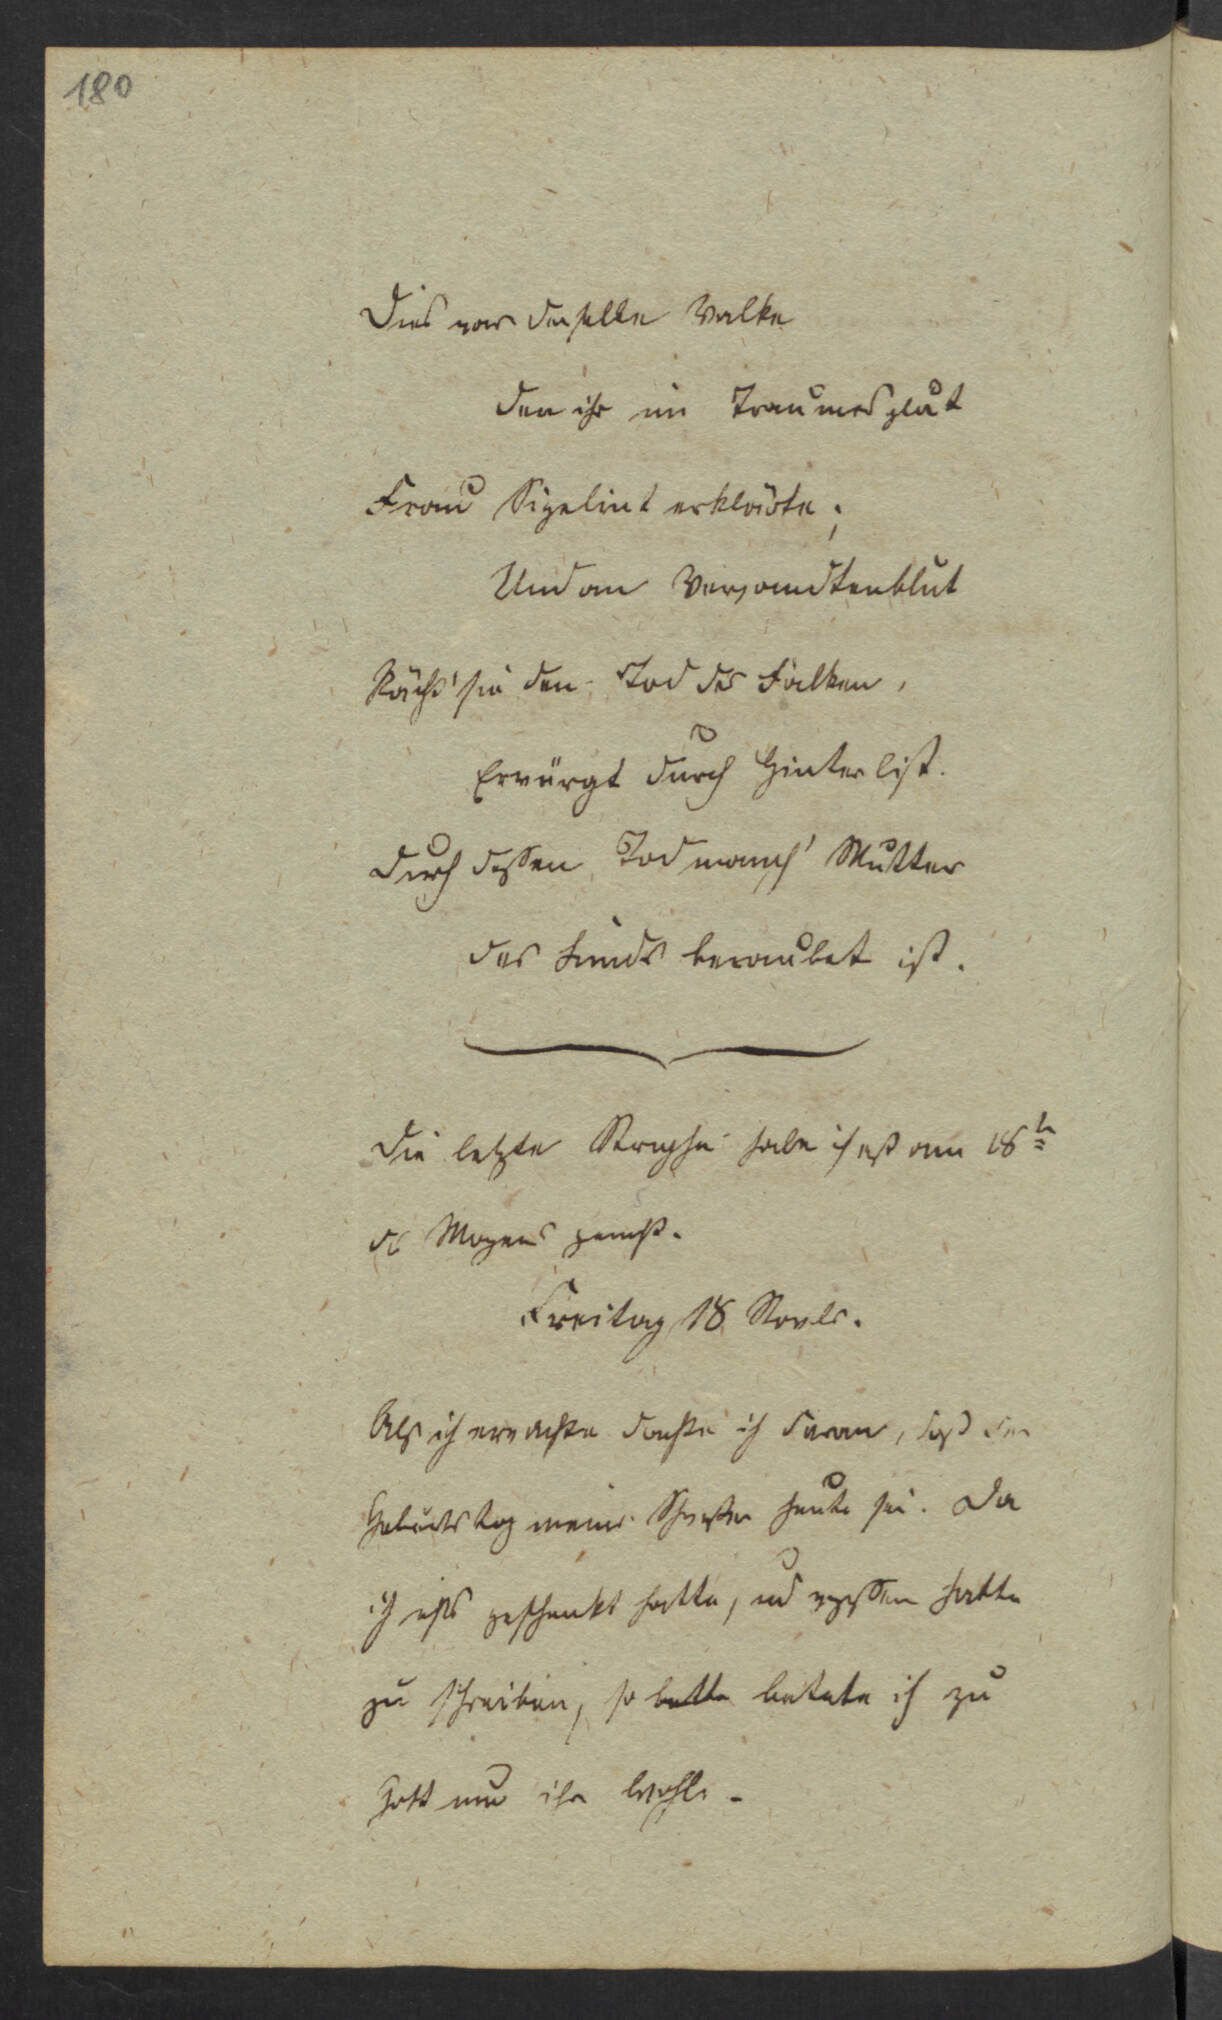 180
Dies war derselbe Valke
den ihr im Traumesglut
Frau Sigelint erklärte;
Und an Verwandtenblut
Rächt' sie den Tod des Falken,
Erwürgt durch Hinterlist.
Durch dessen Tod manch' Mutter
des Kinds beraubet ist.
Die letzte Strophe habe ich erst am 18t
des Morgens gemacht.
Freitag 18 Novbr.
Als ich erwachte dachte ich daran, daß der
Geburtstag meiner Schwester heute sei. Da
ich ihr geschenkt hatte, und vergessen hatte
zu schreiben, so betete ich zu
Gott um ihr Wohl.